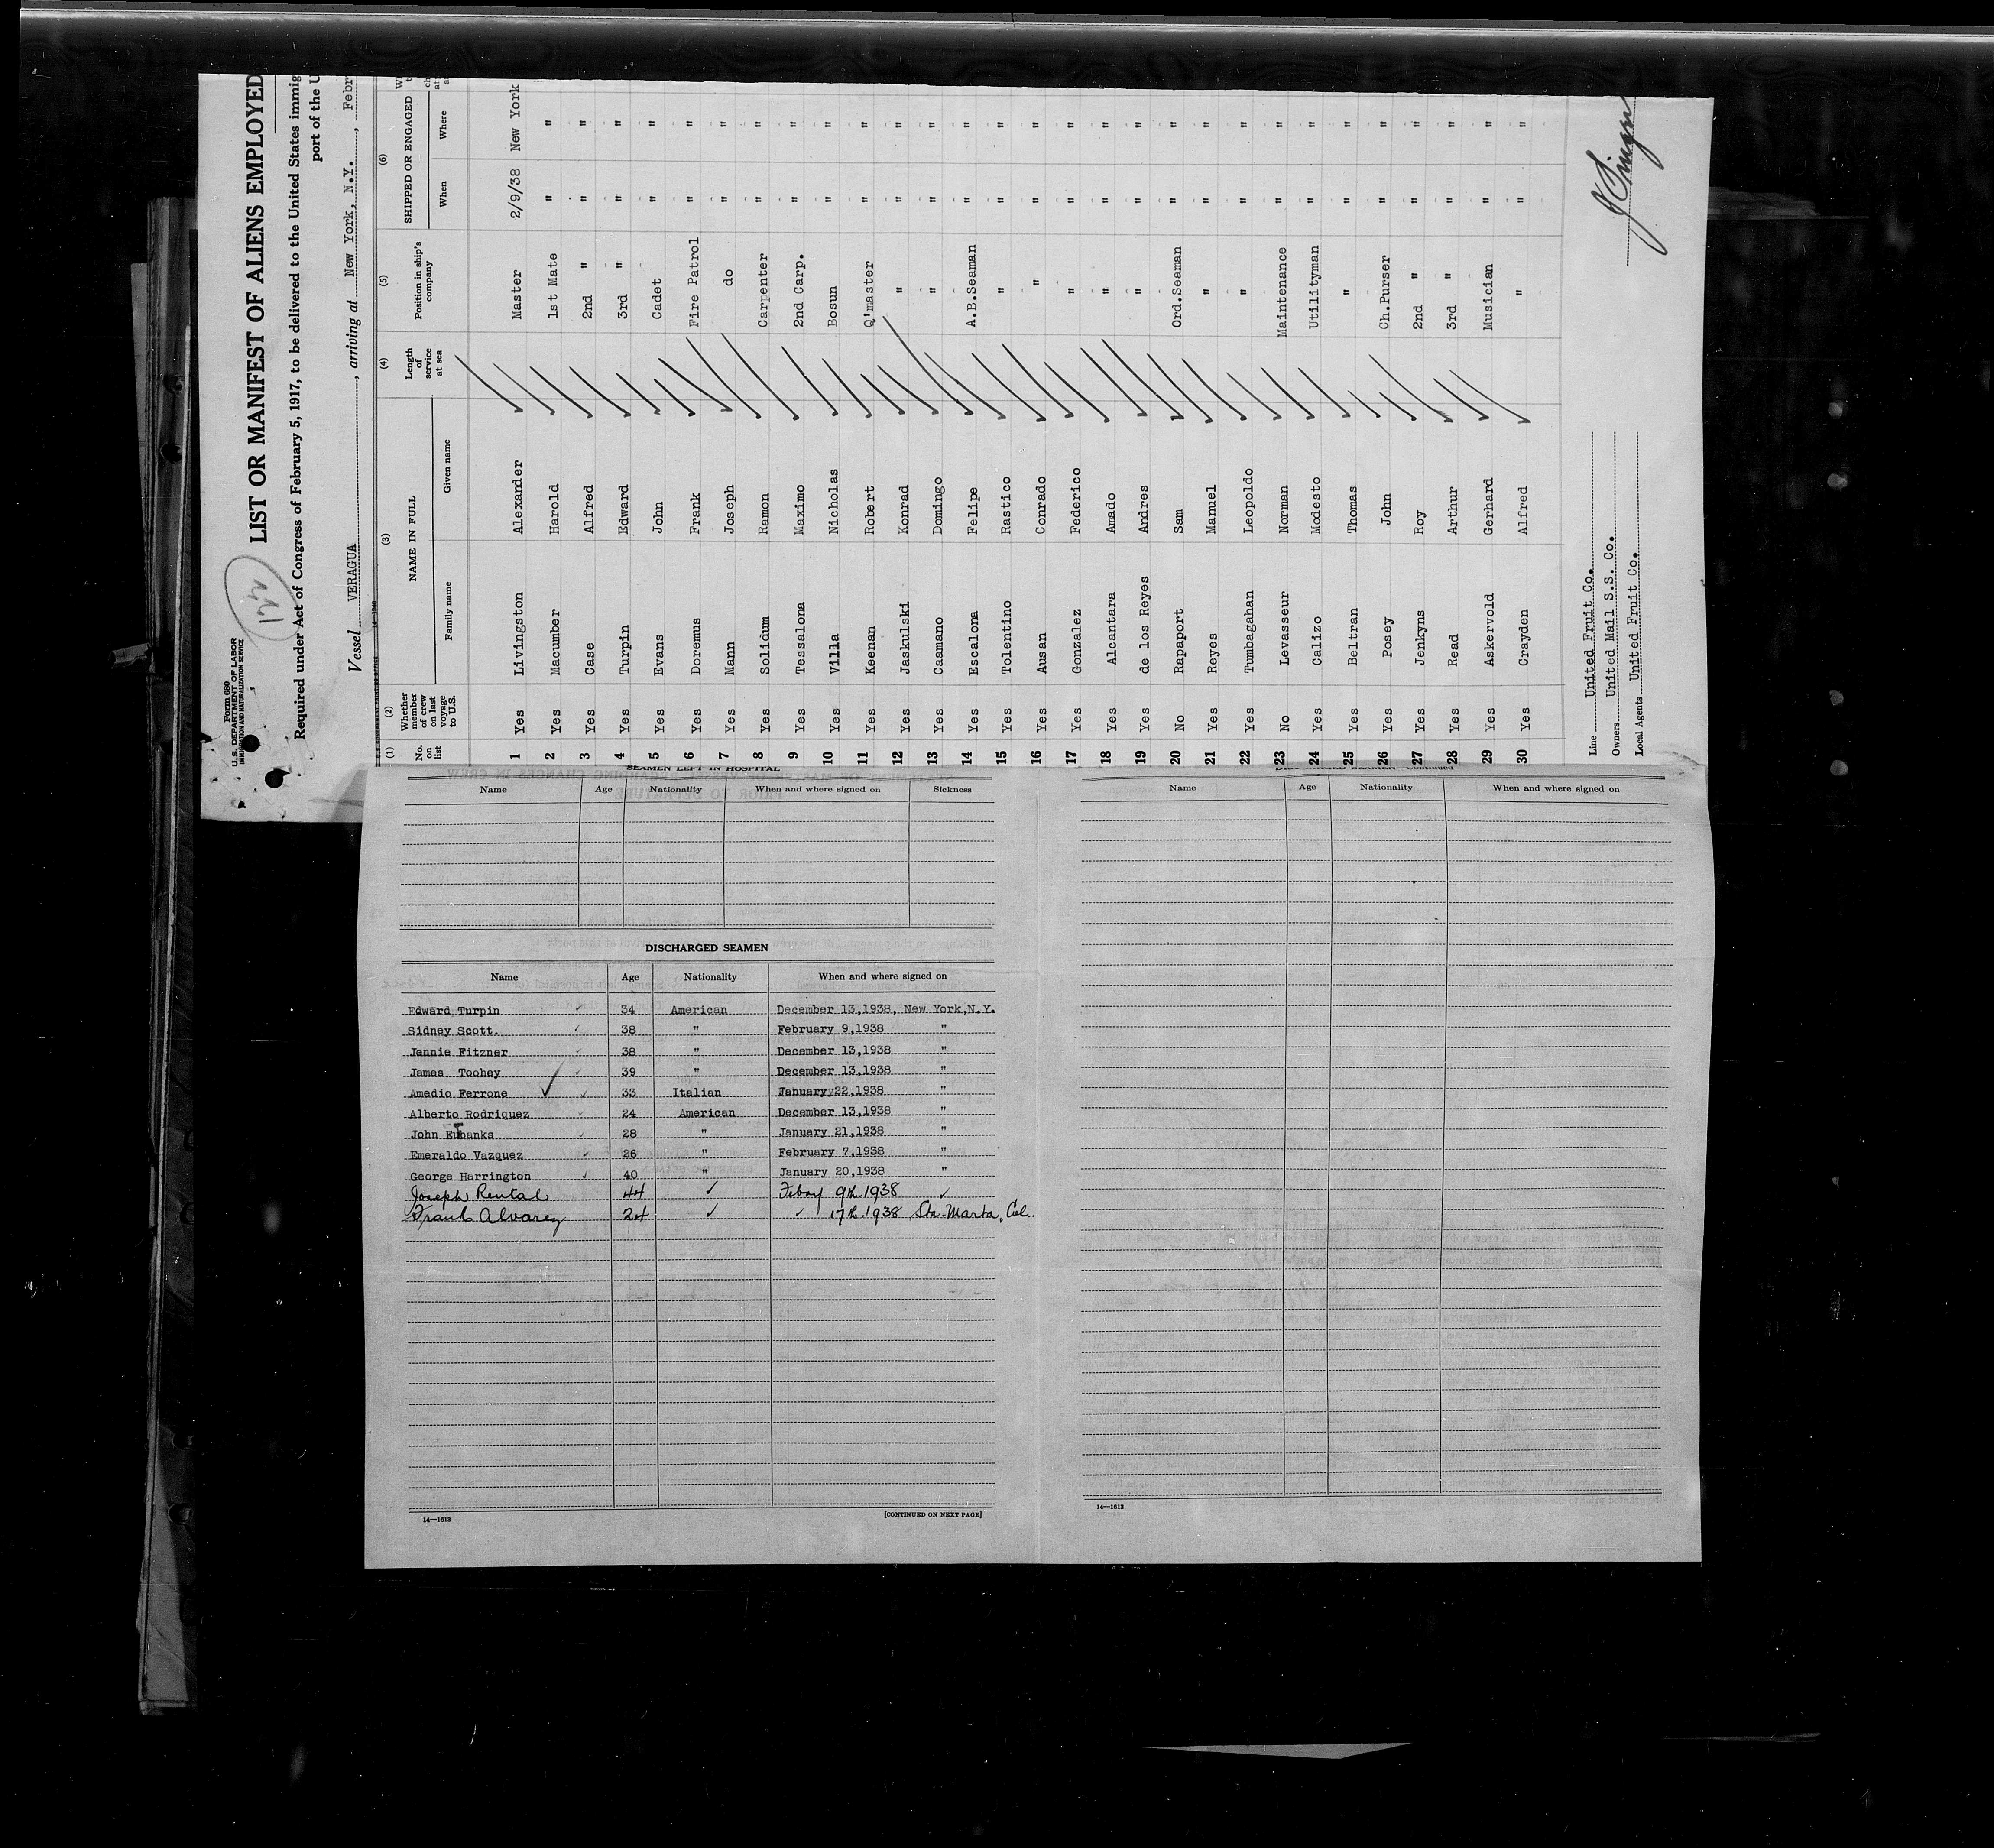 Form 680
U.S. DEPARTMENT OF LABOR
IMMIGRATION AND NATURALIZATION SERVICE
LIST OR MANIFEST OF ALIENS EMPLOYED
Required under Act of Congress of February 5, 1917, to be delivered to the United States immig
port of the U
Vessel VERAGUA, arriving at New York, N.Y., Febr
(1) (2) (3) (4) (5) (6)
No. on list Whether member of crew on last voyage to U.S. NAME IN FULL Length of service at sea Position in ship's company SHIPPED OR ENGAGED
Family name Given name When Where
1 Yes Livingston Alexander Master 2/9/38 New York
2 Yes Macumber Harold 1st Mate " "
3 Yes Case Alfred 2nd " " "
4 Yes Turpin Edward 3rd " " "
5 Yes Evans John Cadet " "
6 Yes Doremus Frank Fire Patrol " "
7 Yes Mann Joseph do " "
8 Yes Solidum Ramon Carpenter " "
9 Yes Tessalona Maximo 2nd Carp. " "
10 Yes Villa Nicholas Bosun " "
11 Yes Keenan Robert Q'master " "
12 Yes Jaskulski Konrad " " "
13 Yes Caamano Domingo " " "
14 Yes Escalona Felipe A.B.Seaman " "
15 Yes Tolentino Rastico " " "
16 Yes Ausan Conrado " " "
17 Yes Gonzalez Federico " " "
18 Yes Alcantara Amado " " "
19 Yes de los Reyes Andres " " "
20 No Rapaport Sam Ord.Seaman " "
21 Yes Reyes Manuel " " "
22 Yes Tumbagahan Leopoldo " " "
23 No Levasseur Norman Maintenance " "
24 Yes Calizo Modesto Utilityman " "
25 Yes Beltran Thomas " " "
26 Yes Posey John Ch.Purser " "
27 Yes Jenkyns Roy 2nd " " "
28 Yes Read Arthur 3rd " " "
29 Yes Askervold Gerhard Musician " "
30 Yes Crayden Alfred " " "
Line United Fruit Co.
Owners United Mail S.S. Co.
Local Agents United Fruit Co.
SEAMEN LEFT IN HOSPITAL
Name Age Nationality When and where signed on Sickness
DISCHARGED SEAMEN
Name Age Nationality When and where signed on
Edward Turpin 34 American December 13,1938, New York,N.Y.
Sidney Scott. 38 " February 9,1938 "
Jennie Fitzner 38 " December 13,1938 "
James Toohey 39 " December 13,1938 "
Amedio Ferrone 33 Italian January 22,1938 "
Alberto Rodriquez 24 American December 13,1938 "
John Eubanks 28 " January 21,1938 "
Emeraldo Vazquez 26 " February 7,1938 "
George Harrington 40 " January 20,1938 "
Joseph Rental 44 Febry 9th 1938
Frank Alvarez 24 17th 1938 Sta. Marta, Col.
14—1613
[CONTINUED ON NEXT PAGE]
Name Age Nationality When and where signed on
14—1613